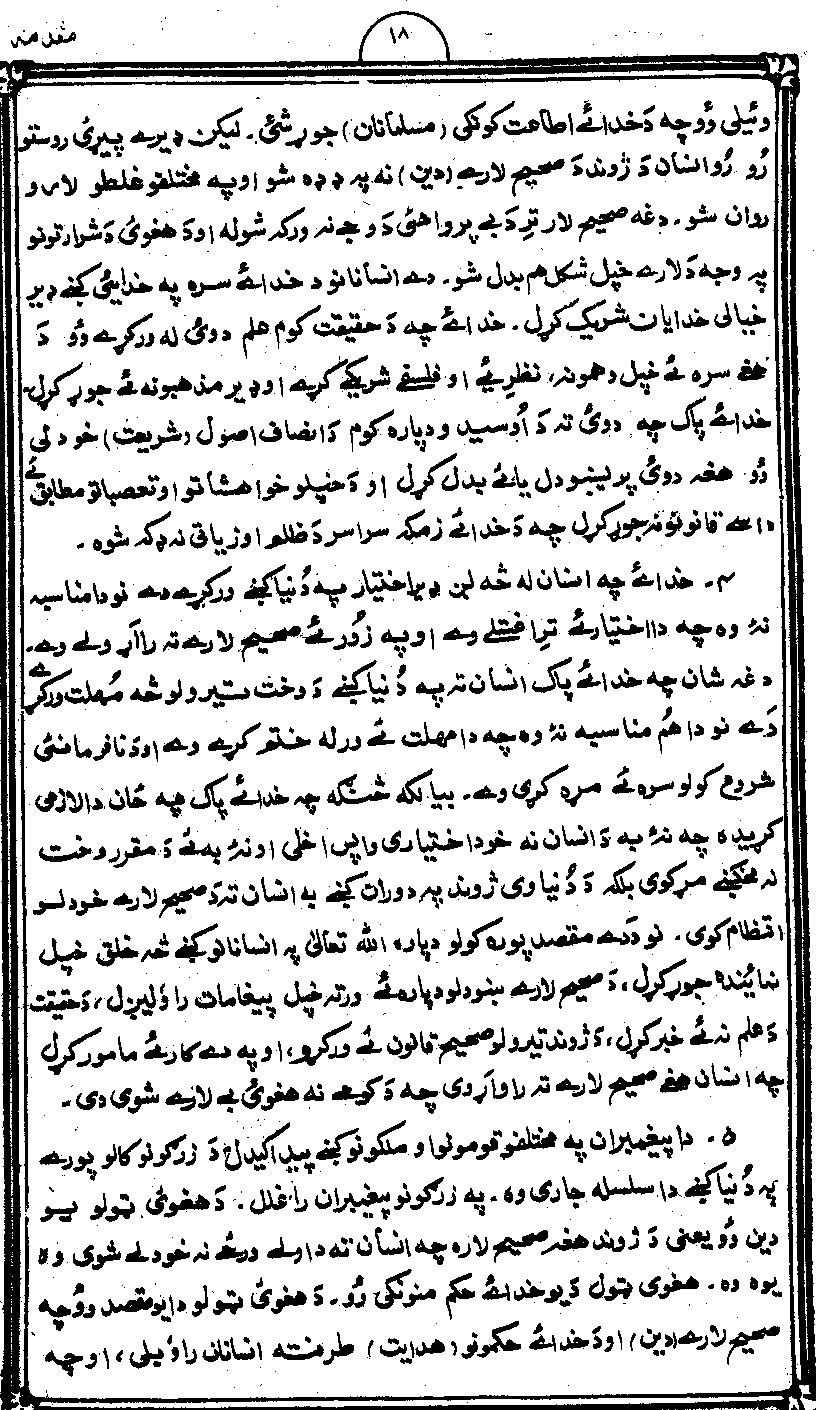 مقدمه
۱۸
وئیلی وُو چه دَ خدائے اطاعت کونکی (مسلمانان) جوړ شئ. لیکن ډیرے پیړئ روستو
رُو رُو انسان دَ ژوند دَ صحیح لارے (دین) نه په ډډه شو او په مختلفو غلطو لارو
روان شو. دغه صحیح لار ترِ دَ بے پرواهئ دَ وجے نه ورکه شوله او دَ هغوئ دَ شرارتونو
په وجه دَ لارے خپل شکل هم بدل شو. دے انسانانو د خدائے سره په خدایئ کښے ډیر
خیالی خدایان شریک کړل. خدائے چه دَ حقیقت کوم علم دوئ له ورکړے وُو دَ
هغے سره ئے خپل وهمونه، نظریئے او فلسفے شریکے کړے او ډیر مذهبونه ئے جوړ کړل.
خدائے پاک چه دوئ ته دَ اُوسیدو دپاره کوم دَ انصاف اصول (شریعت) خودلی
وُو هغه دوئ پریښودل یا ئے بدل کړل او دَ خپلو خواهشاتو او تعصباتو مطابق ئے
داسے قانونونه جوړ کړل چه دَ خدائے زمکه سراسر دَ ظلم او زیاتی نه ډکه شوه.
۴. خدائے چه انسان له څه لږ ډیر اختیار په دُنیا کښے ورکړے دے نو دا مناسبه
نۀ وه چه دا اختیار ئے ترِ اخستلے وے او په زور ئے صحیح لارے ته راآړولے وے.
دغه شان چه خدائے پاک انسان ته په دُنیا کښے دَ وخت تیرولو څه مُهلت ورکړے
دَے نو دا هُم مناسبه نۀ وه چه دا مهلت ئے ورله ختم کړے وے او دَ نافرمانئ
شروع کولو سره ئے مړه کړی وے. بیا لکه څنګه چه خدائے پاک په ځان دا لازمی
کړیده چه نۀ به دَ انسان نه خود اختیاری واپس اخلی او نۀ به ئے دَ مقرر وخت
نه مخکښے مړ کوی بلکه دَ دُنیاوی ژوند په دوران کښے به انسان ته دَ صحیح لارے خودلو
انتظام کوی. نو دَدے مقصد پوره کولو دپاره الله تعالیٰ په انسانانو کښے څه خلق خپل
نمائنده جوړ کړل، دَ صحیح لارے ښودلو دپاره ئے ورته خپل پیغامات راوُلیږل، دَ حقیقت
دَ علم نه ئے خبر کړل، دَ ژوند تیرولو صحیح قانون ئے ورکړو، او په دے کار ئے مامور کړل
چه انسان هغے صحیح لارے ته راواړوی چه دَ کومے نه هغوئ بے لارے شوی دی.
۵. دا پیغمبران په مختلفو قومونو او ملکونو کښے پیدا کیدل دَ زرګونو کالو پورے
په دُنیا کښے دا سلسله جاری وه. په زرګونو پیغمبران راغلل. دَ هغوئ ټولو یو
دین وُو یعنی دَ ژوند هغه صحیح لاره چه انسان ته داولے ورځے نه خودلے شوی وه
یوه وه. هغوی ټول دَ یو خدائے حکم منونکی وُو. دَ هغوئ ټولو دا یو مقصد ووُ چه
صحیح لارے (دین) او دَ خدائے حکمونو (هدایت) طرفته انسانان راوُبلی، او چه